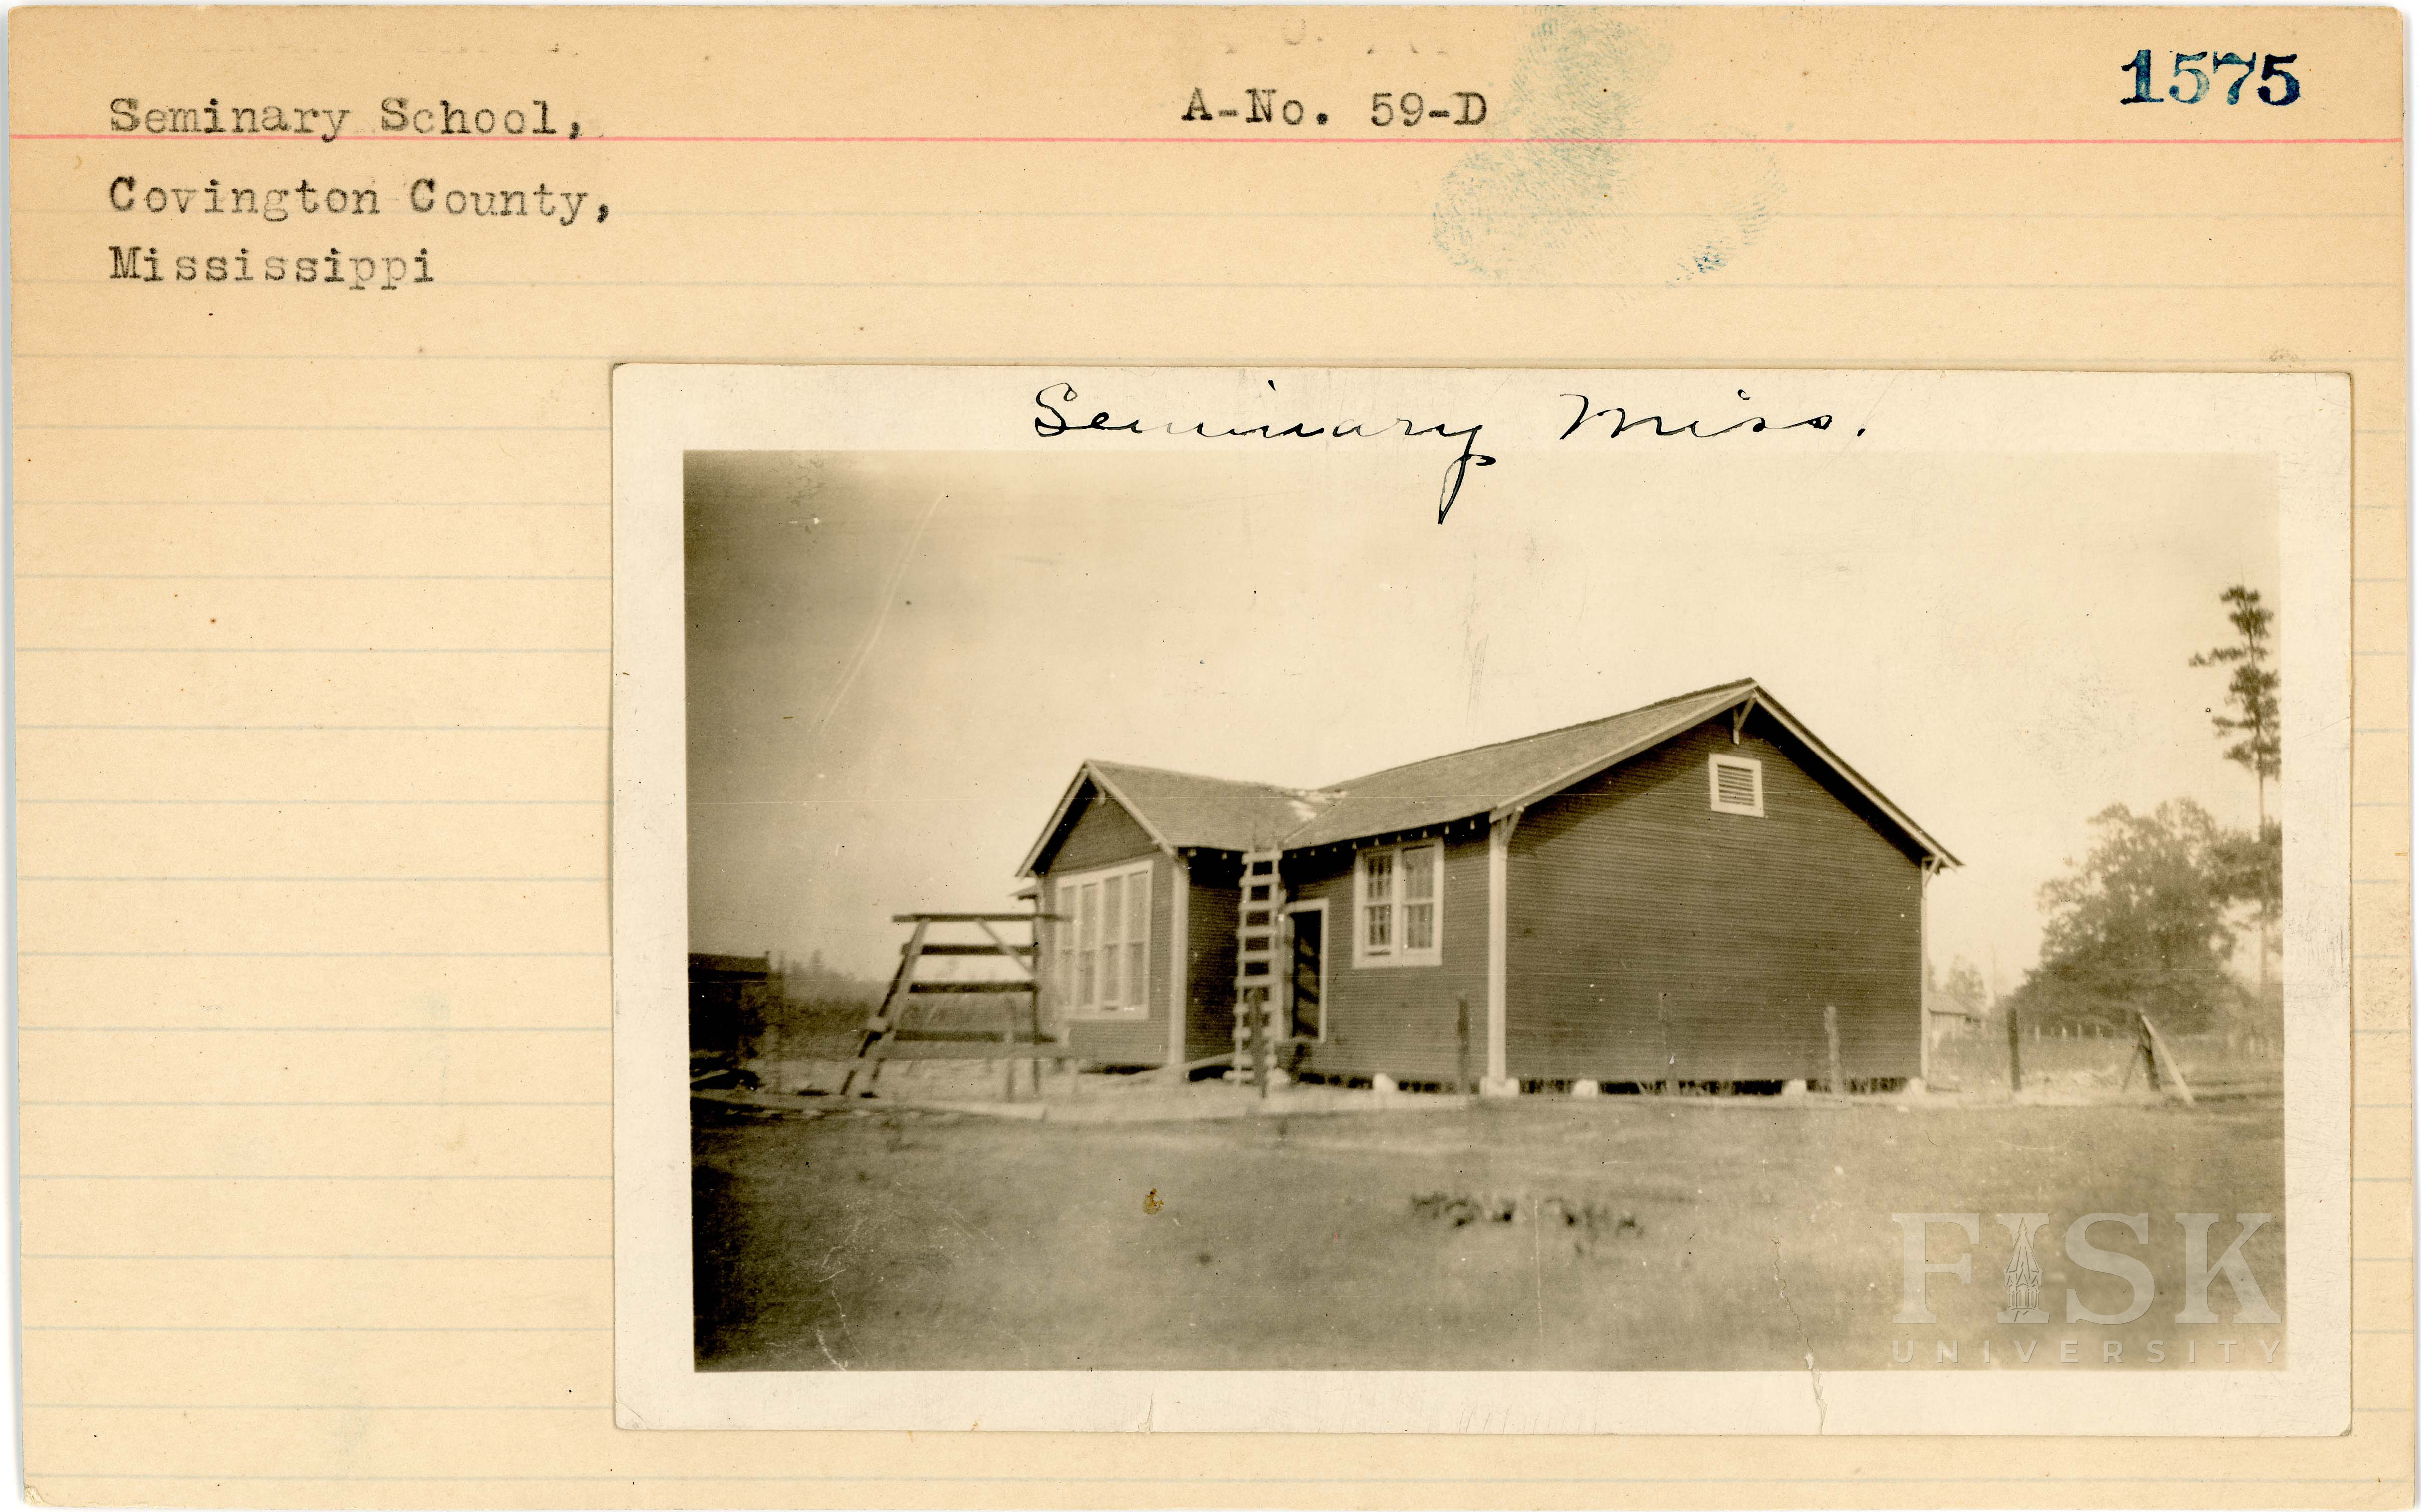 1575
Seminary School,
A-No. 59-D
Covington County,
Mississippi
Seminary Miss.
FISK
UNIVERSITY